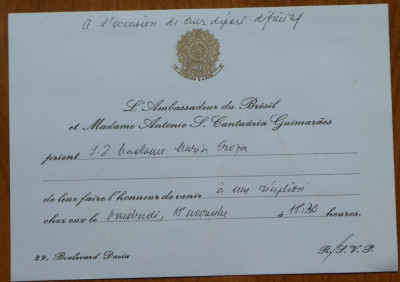 A l'occasion de leur départ définitif
L'Ambassadeur du Brésil
et Madame Antonio S. Cantuária Guimarães
prient Madame Maria Groza
de leur faire l'honneur de venir à une réception
chez eux le 18 novembre à 18:30 heures.
29, Boulevard Dacia R.S.V.P.